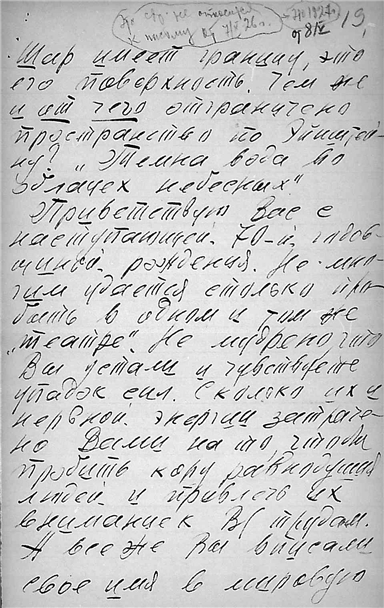 Эта стр. не относится
к письму от 7/V 26 г.
19.
Шар имеет границу, это
его поверхность. Чем же
и от чего отграничено
пространство по Эйнштей-
ну? „Темна вода во
облацех небесных“
Приветствую Вас с
наступающей 70-й годов-
щиной рождения. Не мно-
гим удается столько про-
быть в одном и том же
„театре“. Не мудрено что
Вы устали и чувствуете
упадок сил. Сколько их и
нервной энергии затраче-
но Вами на то, чтобы
пробить кору равнодушия
людей и привлечь их
внимание к В/ трудам.
А все же Вы вписали
свое имя в мировую